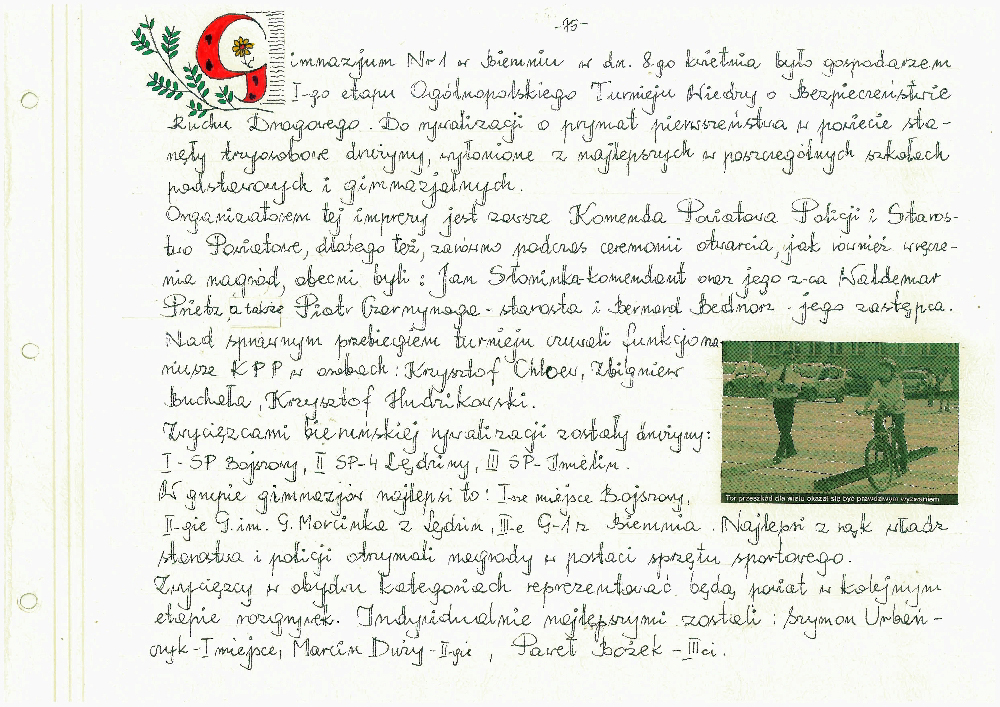 -75-
Gimnazjum Nr 1 w Bieruniu w dn. 8-go kwietnia było gospodarzem
I-go etapu Ogólnopolskiego Turnieju Wiedzy o Bezpieczeństwie
Ruchu Drogowego. Do rywalizacji o prymat pierwszeństwa w powiecie sta-
nęły trzyosobowe drużyny, wyłonione z najlepszych w poszczególnych szkołach
podstawowych i gimnazjalnych.
Organizatorem tej imprezy jest zawsze Komenda Powiatowa Policji i Staros-
two Powiatowe, dlatego też, zarówno podczas ceremonii otwarcia, jak również wręcze-
nia nagród, obecni byli: Jan Słoninka-komendant oraz jego z-ca Waldemar
Pietz, a także Piotr Czarnynoga - starosta i Bernard Bednorz - jego zastępca.
Nad sprawnym przebiegiem turnieju czuwali funkcjona-
riusze KPP w osobach: Krzysztof Chlow, Zbigniew
Buchała, Krzysztof Hudzikowski.
Zwycięzcami bieruńskiej rywalizacji zostały drużyny:
I - SP Bojszowy, II SP-4 Lędziny, III SP- Imielin.
W grupie gimnazjów najlepsi to: I-sze miejsce Bojszowy,
II-gie G. im. G. Morcinka z Lędzin, III-e G-1 z Bierunia. Najlepsi z rąk władz
starostwa i policji otrzymali nagrody w postaci sprzętu sportowego.
Zwycięzcy w obydwu kategoriach reprezentować będą powiat w kolejnym
etapie rozgrywek. Indywidualnie najlepszymi zostali: Szymon Urbań-
czyk - I miejsce, Marcin Duży - II-gie, Paweł Bożek - III-ci.
Tor przeszkód dla wielu okazał się być prawdziwym wyzwaniem